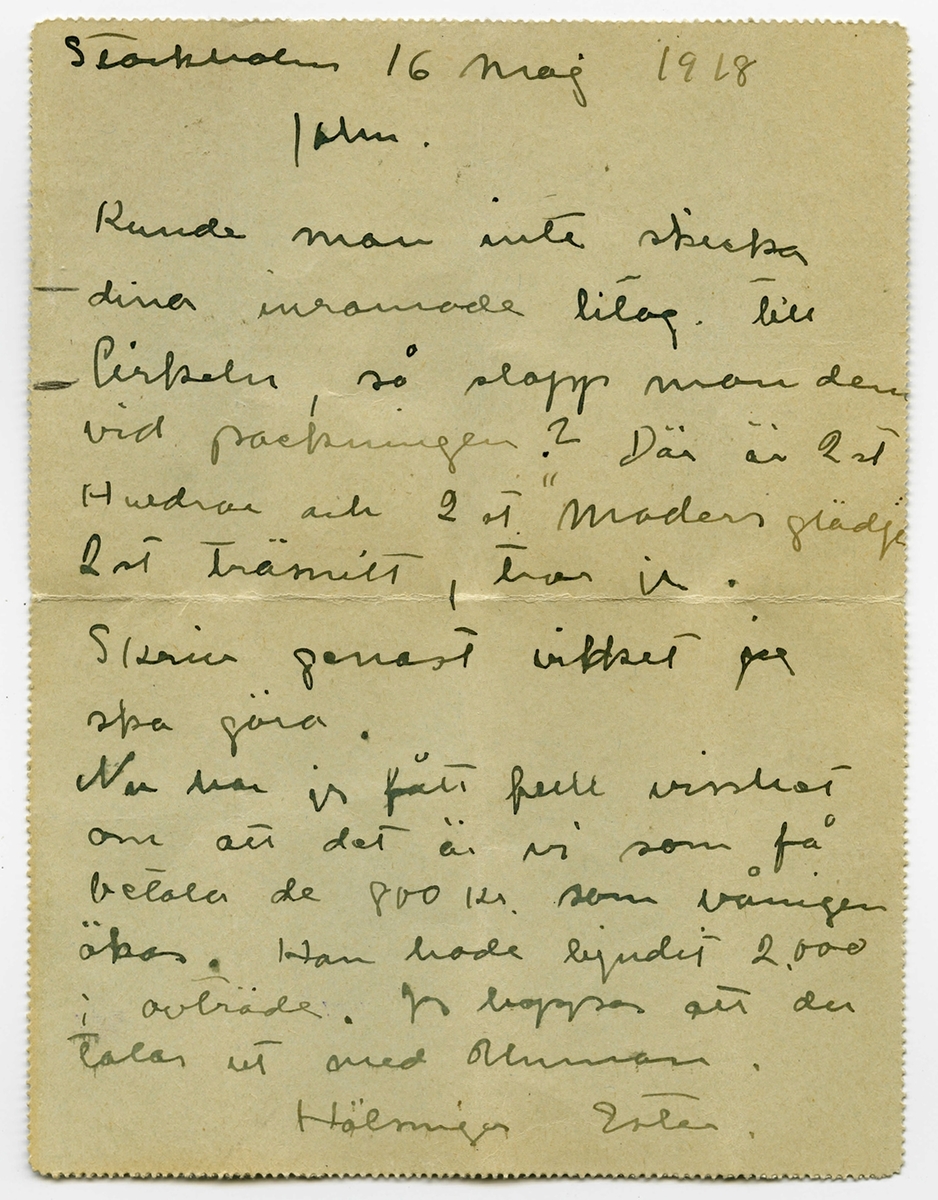 Stockholm 16 Maj 1918
John.
Kunde man inte skicka
dina inramade litog. till
Cirkeln, så slapp man dem
vid packningen? Där är 2 st
Huldror och 2 st "Moders glädje
2 st träsnitt, tror ja.
Skriv genast vilket jag
ska göra.
Nu har ja fått full visshet
om att det är vi som få
betala de 800 kr. som våningen
ökas. Han hade bjudit 2,000
i avträde. Ja hoppas att du
talar ut med
Hälsningar Ester.